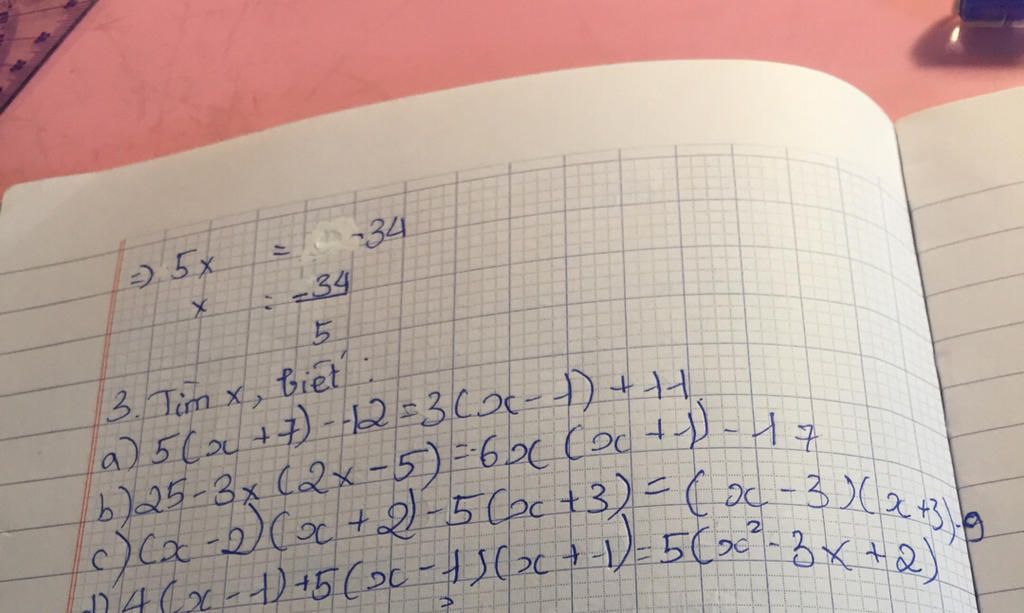 => 5x = -34
x = -34/5
3. Tìm x, biết:
a) 5(x + 7) - 12 = 3(x - 1) + 11
b) 25 - 3x(2x - 5) = -6x(x + 1) - 17
c) (x - 2)(x + 2) - 5(x + 3) = (x - 3)(x + 3) - 9
d) 4(x - 1) + 5(x - 1)(x + 1) = 5(x² - 3x + 2)